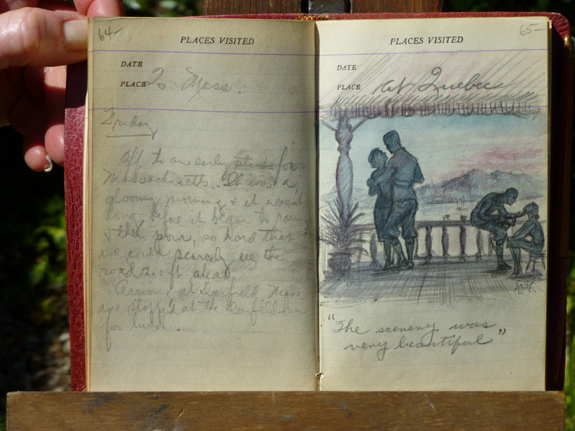 64-
PLACES VISITED
DATE
PLACE To Mass.
Friday
Off to an early start for
Massachusetts. It was a
gloomy morning & it wasn't
long before it began to rain
& then pour, so hard that
we could scarcely see the
road 20 ft ahead.
Arriving at Deerfield Mass
we stopped at the Deerfield Inn
for lunch.
65-
PLACES VISITED
DATE
PLACE at Quebec
"The scenery was
very beautiful"